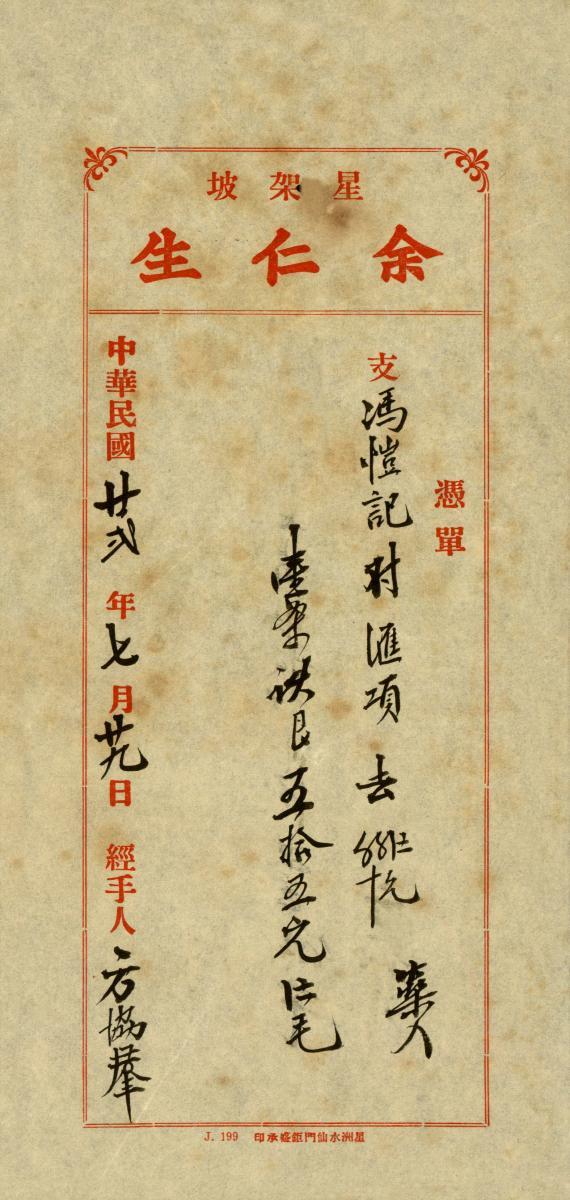 星架坡
余仁生
憑單
支馮愷記対滙項去
五拾五元
中華民國廿弍年七月廿九日 經手人 方協羣
星洲水仙門鉅盛承印 J. 199